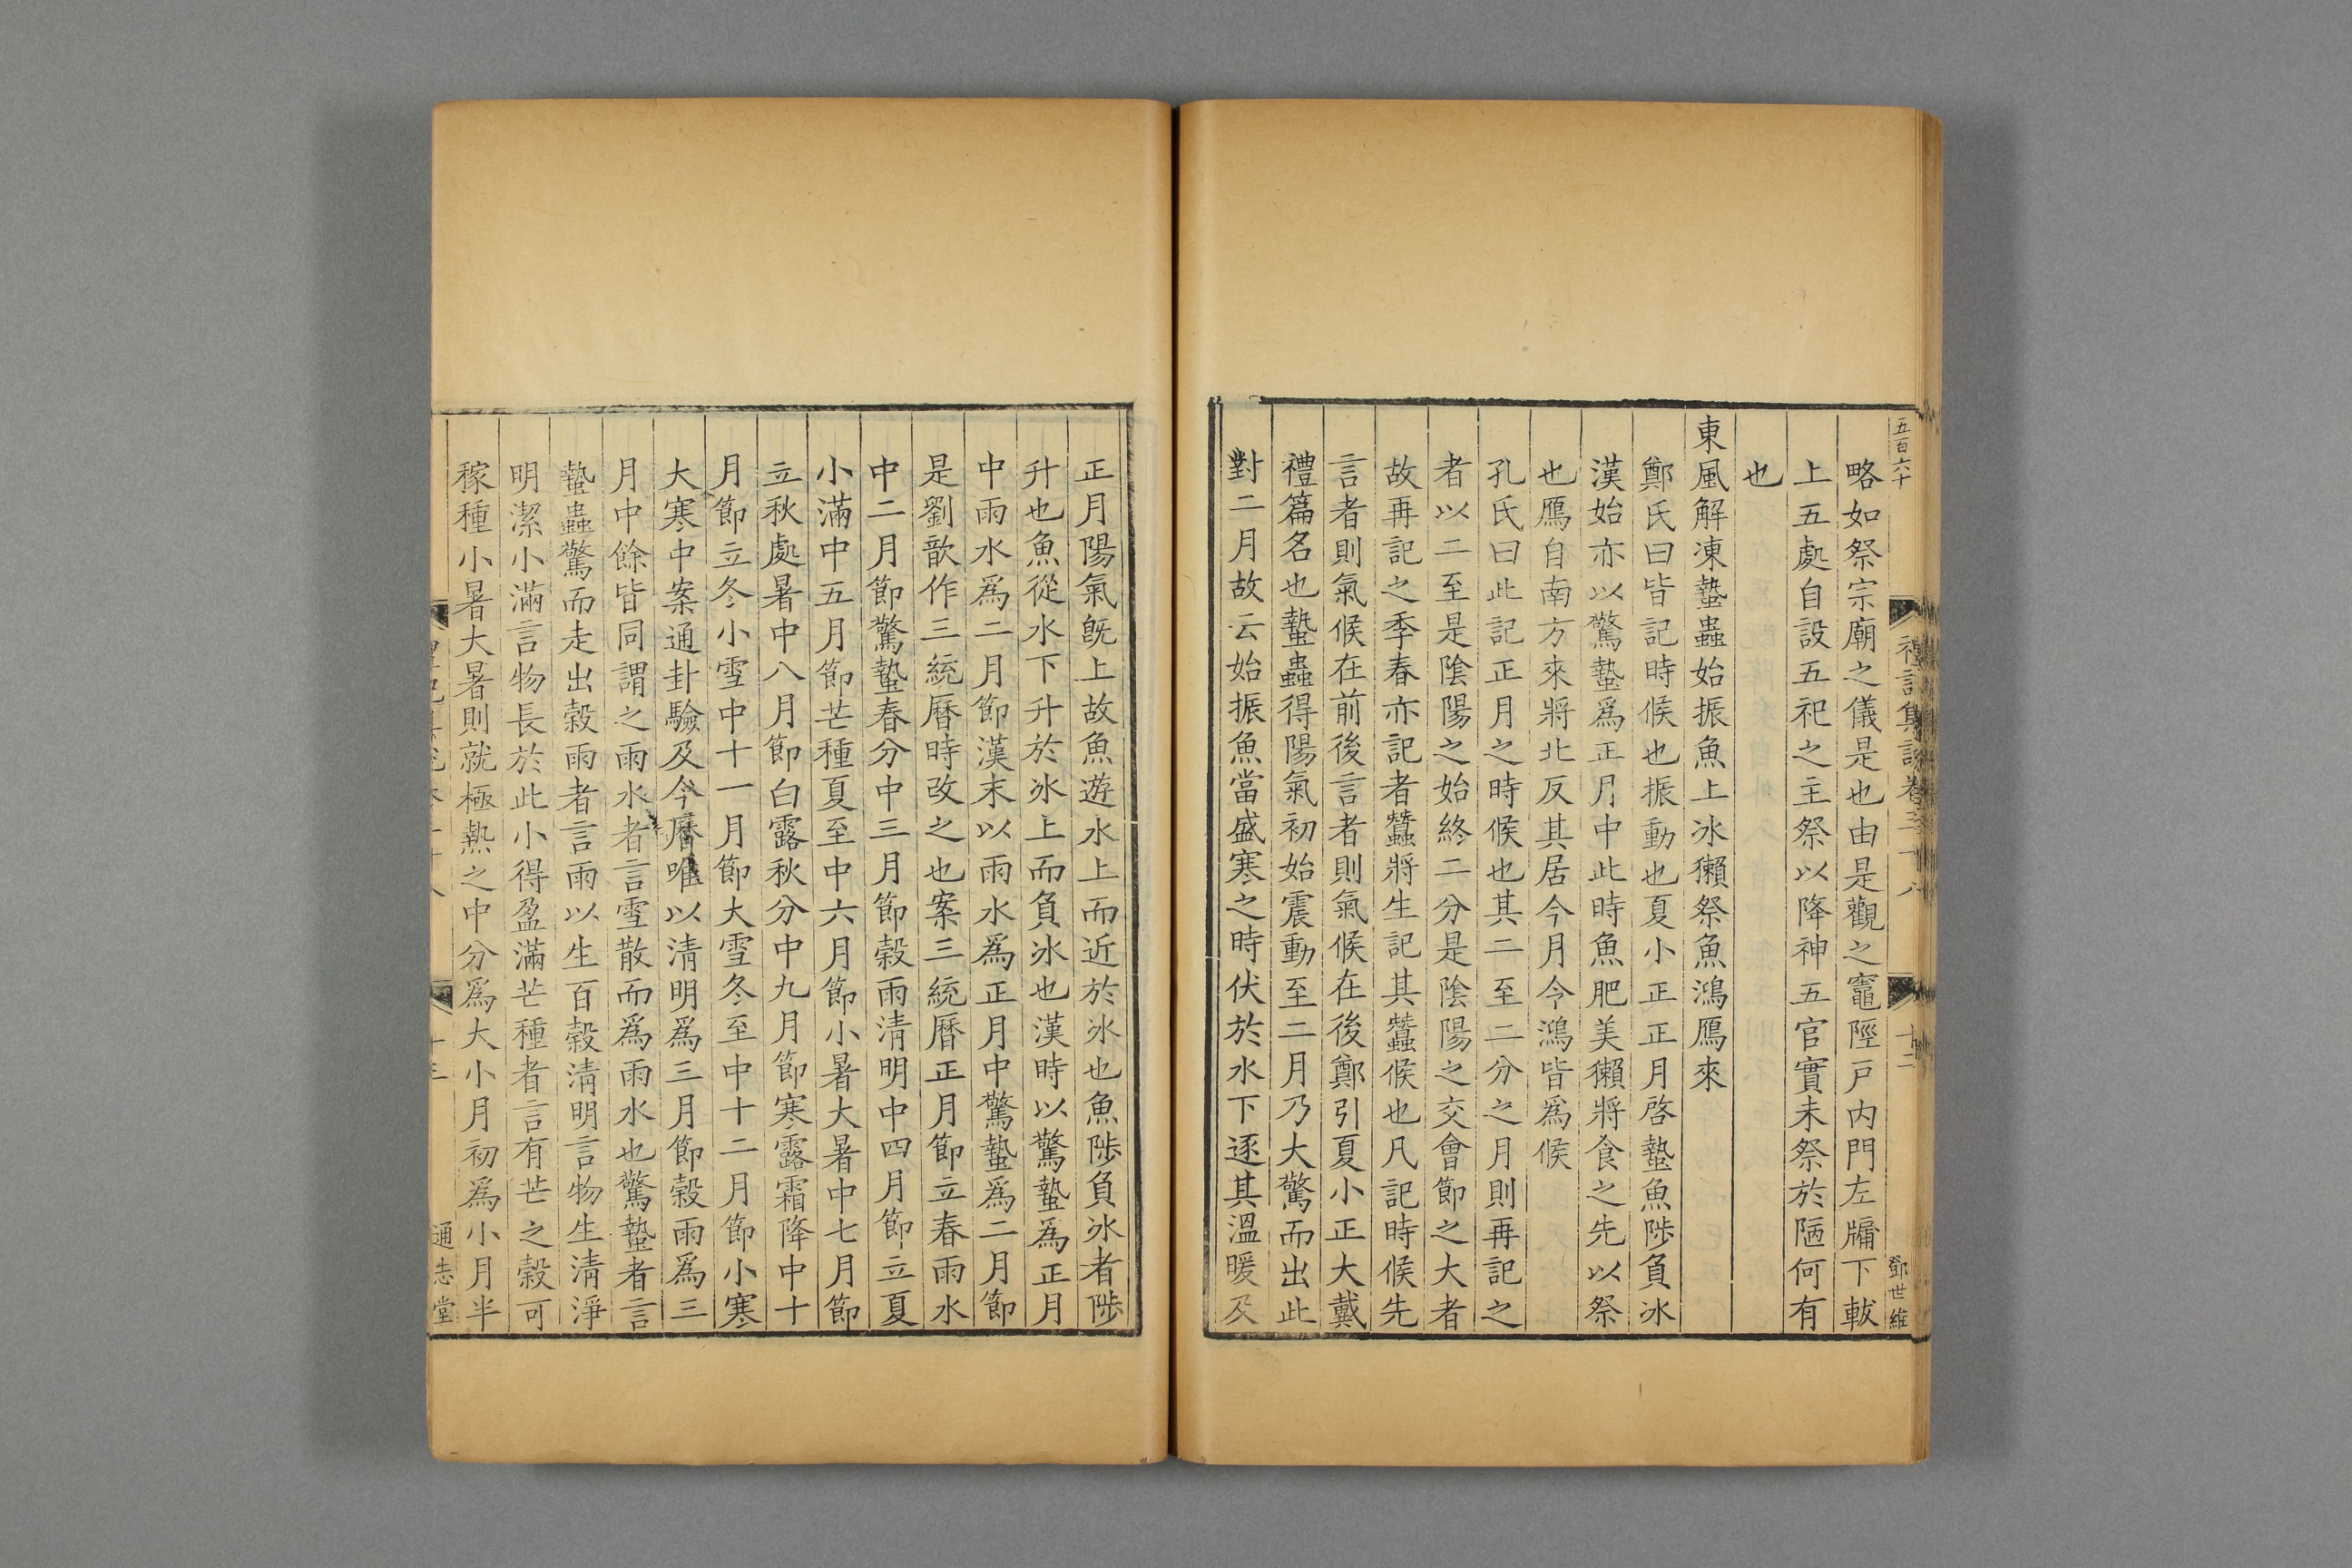 五百六十
禮記集說卷三十八
十二
鄧世維
略如祭宗廟之儀是也由是觀之竈陘戶内門左牖下軷
上五處自設五祀之主祭以降神五官實未祭於陋何有
也
東風解凍蟄蟲始振魚上冰獺祭魚鴻鴈來
鄭氏曰皆記時候也振動也夏小正正月啓蟄魚陟負冰
漢始亦以驚蟄爲正月中此時魚肥美獺將食之先以祭
也鴈自南方來將北反其居今月令鴻皆爲候
孔氏曰此記正月之時候也其二至二分之月則再記之
者以二至是陰陽之始終二分是陰陽之交會節之大者
故再記之季春亦記者蠶將生記其蠶候也凡記時候先
言者則氣候在前後言者則氣候在後鄭引夏小正大戴
禮篇名也蟄蟲得陽氣初始震動至二月乃大驚而出此
對二月故云始振魚當盛寒之時伏於水下逐其溫暖及
正月陽氣旣上故魚遊水上而近於冰也魚陟負冰者陟
升也魚從水下升於冰上而負冰也漢時以驚蟄爲正月
中雨水爲二月節漢末以雨水爲正月中驚蟄爲二月節
是劉歆作三統曆時改之也案三統曆正月節立春雨水
中二月節驚蟄春分中三月節穀雨清明中四月節立夏
小滿中五月節芒種夏至中六月節小暑大暑中七月節
立秋處暑中八月節白露秋分中九月節寒露霜降中十
月節立冬小雪中十一月節大雪冬至中十二月節小寒
大寒中案通卦驗及今曆唯以清明爲三月節穀雨爲三
月中餘皆同謂之雨水者言雪散而爲雨水也驚蟄者言
蟄蟲驚而走出穀雨者言雨以生百穀清明言物生清淨
明潔小滿言物長於此小得盈滿芒種者言有芒之穀可
稼種小暑大暑則就極熱之中分爲大小月初爲小月半
十三
通志堂